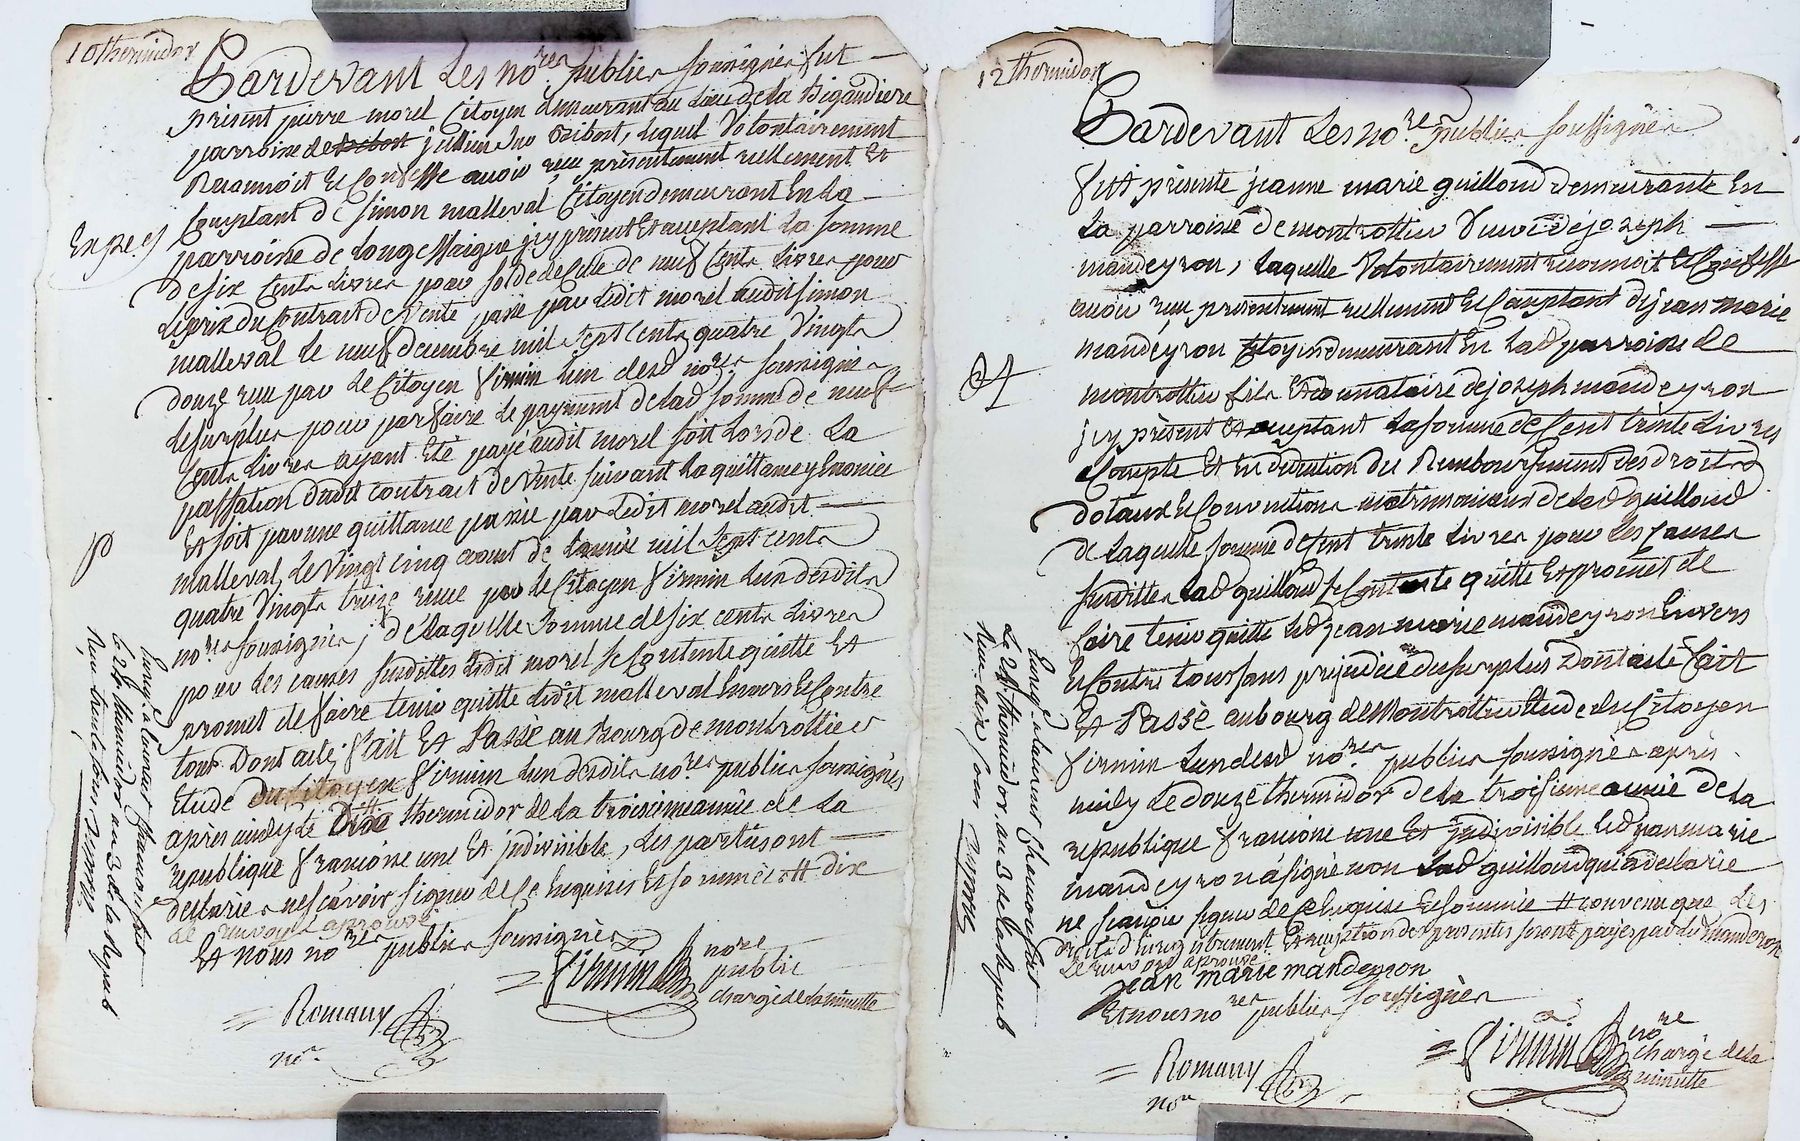 10 thermidor
Pardevant Les no.res publics soussignés fut
présent pierre morel Citoyen demeurant au Lieu de la Bigaudiere
parroisse de jullien sur Bibost, lequel Volontairement
Reconnoit et Confesse avoir reçu présentement réellement et
Comptant de simon malleval Citoyen demeurant En La
parroisse de Longessaigne jcy présent et acceptant La somme
de six Cents Livres pour solde de celle de neuf Cents Livres pour
le prix du Contract de vente passé par ledit morel audit simon
malleval le neuf decembre mil sept cents quatre vingts
douze reçu par le Citoyen firmin l'un desd no.res soussignés
le surplus pour parfaire le payement de lad somme de neuf
Cents Livres ayant été payé audit morel soit Lors de La
passation dudit contract de vente suivant la quittance y énoncée
Et soit par une quittance passée par ledit morel audit
malleval, le vingt cinq aoust de l'année mil sept cents
quatre vingts treize reçue par le Citoyen firmin l'un desdits
no.res soussignés; de laquelle somme de six cents Livres
pour les causes susdittes ledit morel se contente quitte et
promet de faire tenir quitte ledit malleval Envers et Contre
tous Dont acte; fait Et Passé au Bourg de montrottier
Etude du Citoyen firmin l'un desdits no.res publics soussignés
apres midy le Dix thermidor de la troisieme année de La
republique francoise une Et jndivisible, Les parties ont
déclaré ne sçavoir signer de ce Enquises Et sommées # dix
de renvoyé aprouvé
Et nous no.res publics soussignés
= firmin no.re
public
chargé de la minutte
= Romany
no.re
Exp.ée
Enreg.é a Laurent Chamousset
le 24 thermidor an 3 de la Repub
Reçu trente sous
12 thermidor
Pardevant Les no.re publics soussignés
fut présente jeanne marie guilloud demeurante En
La parroisse de montrottier Veuve de joseph
mandeyron, Laquelle Volontairement reconnoit et Confesse
avoir reçu présentement réellement et Comptant de jean marie
mandeyron Citoyen demeurant En lad parroisse de
montrottier fils Et donnataire de joseph mandeyron
jcy présent et acceptant La somme de Cent trente Livres
à Compte Et En déduction du Remboursement des droits
dotaux et Conventions matrimoniaux de lad guilloud
de laquelle somme de Cent trente Livres pour Les Causes
susdittes lad guilloud se Contente quitte Et promet de
faire tenir quitte led jean marie mandeyron Envers
et Contre tous sans prejudice du surplus Dont acte fait
Et Passé au bourg de Montrottier Etude du Citoyen
firmin l'un desd no.res publics soussignés après
midy Le douze thermidor de la troisieme année de la
republique francoise une Et jndivisible led jean marie
mandeyron a signé non lad guilloud qui a déclaré
ne sçavoir signer de ce Enquise et sommée # convenu que Les
led mandeyron
Le renvoyé aprouvé
jean marie mandeyron
Et nous no.res publics soussignés
= firmin no.re
chargé de la
minutte
= Romany
no.re
Enreg.é a Laurent Chamousset
Le 24 thermidor an 3 de la Repub
Reçu dix sous